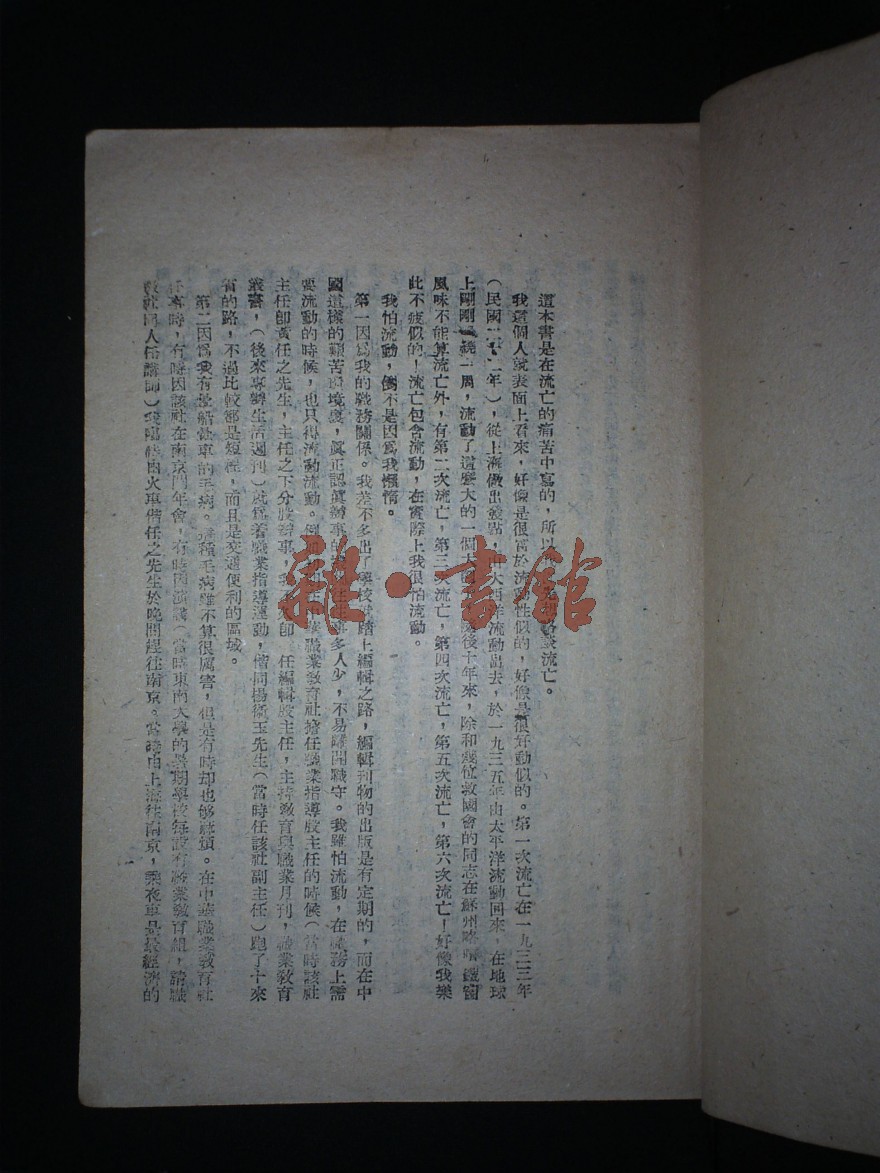 這本書是在流亡的痛苦中寫的，所以流亡。
我這個人就表面上看來，好像是很富於流動性似的，好像是很好動似的。第一次流亡在一九三三年
（民國二十二年），從上海做出發點，由大西洋流動出去，於一九三五年由太平洋流動回來，在地球
上剛剛繞一周，流動了這麼大的一個大後十年來，除和幾位救國會的同志在蘇州略嘗鐵窗
風味不能算流亡外，有第二次流亡，第三次流亡，第四次流亡，第五次流亡，第六次流亡！好像我樂
此不疲似的！流亡包含流動，在實際上我很怕流動。
我怕流動，倒不是因爲我懶惰。
第一因爲我的職務關係。我差不多出了學校就踏上編輯之路，編輯刊物的出版是有定期的，而在中
國這樣的艱苦環境裏，眞正認眞辦事的往往事多人少，不易離開職守。我雖怕流動，在職務上需
要流動的時候，也只得流動流動。例如我在中華職業教育社擔任職業指導股主任的時候（當時該社
主任卽黃任之先生，主任之下分股辦事，我卽任編輯股主任，主持教育與職業月刊，職業教育
叢書，（後來專辦生活週刊）就爲着職業指導運動，偕同楊衞玉先生（當時任該社副主任）跑了十來
省的路，不過比較都是短程，而且是交通便利的區域。
第二因爲我有暈船暈車的毛病。這種毛病雖不算很厲害，但是有時却也够麻煩。在中華職業教育社
任事時，有時因該社在南京開年會，有時因演講（當時東南大學的暑期學校每設有職業教育組，請職
教社同人任講師）我臨時由火車偕任之先生於晚間趕往南京。當時由上海往南京，乘夜車是最經濟的
雜·書館